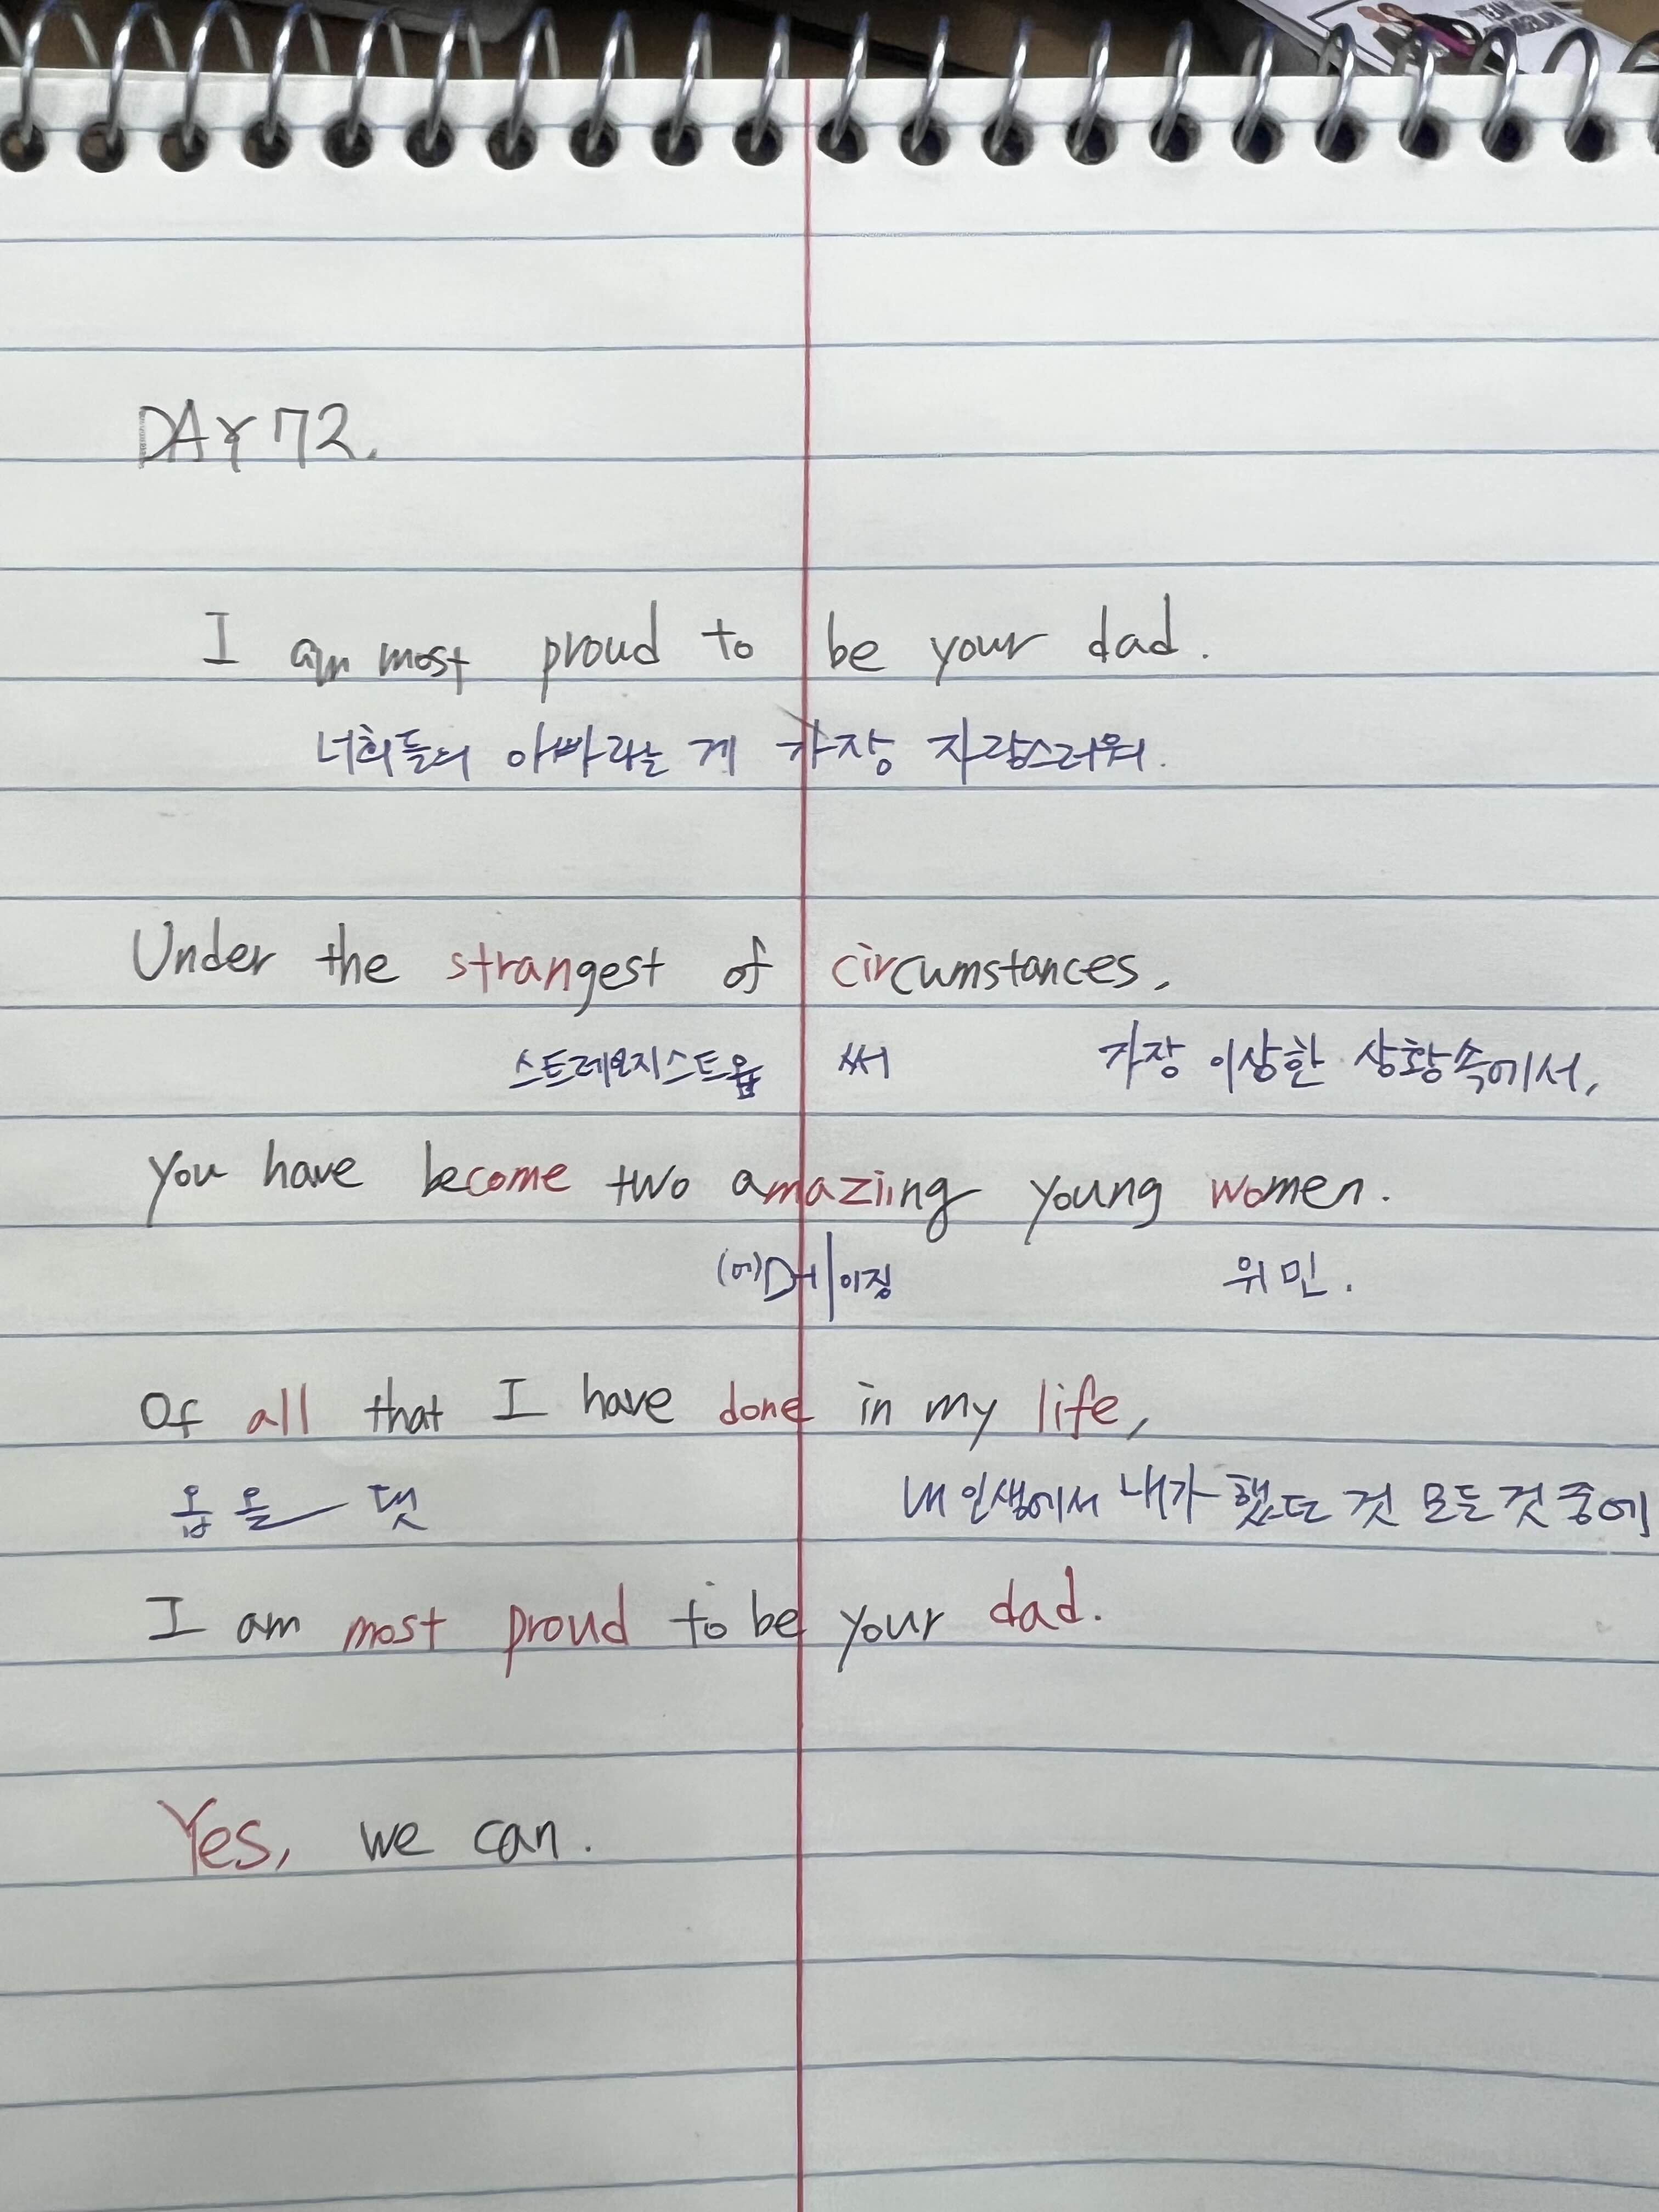 DAY 72.
I am most proud to be your dad.
너희들의 아빠라는 게 가장 자랑스러워.
Under the strangest of circumstances,
스트레인지스트옵 써 가장 이상한 상황속에서,
you have become two amaziing young women.
(어)메이징 위민.
Of all that I have done in my life,
옵 올 댓 내 인생에서 내가 했던 것 모든것 중에
I am most proud to be your dad.
Yes, we can.